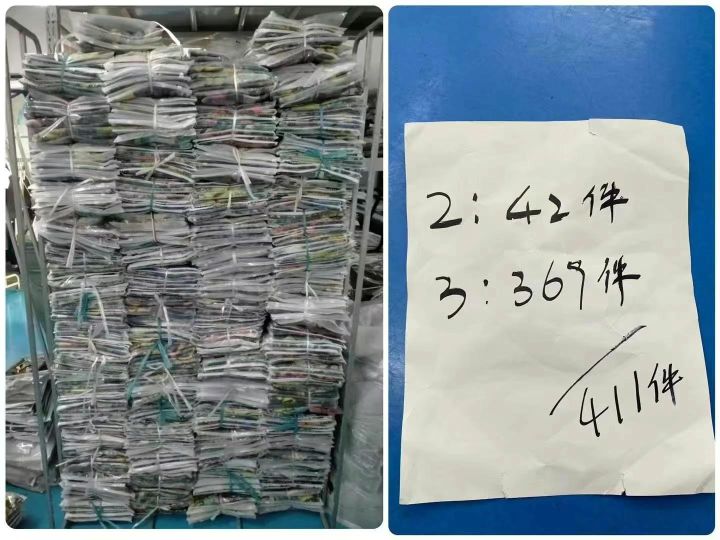 2:42件
3:369件
411件